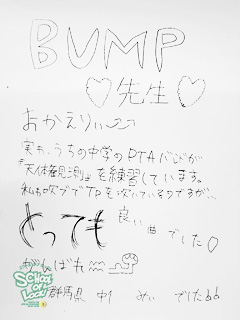 BUMP
♡先生♡
おかえりぃ〜
実は、うちの中学のPTAバンドが
『天体観測』を練習しています。
私も吹ブでTPを吹いているのですが、、
とっても 良い曲でした♡
がんばれ
SCHOOL OF LOCK!
群馬県 中1 めい でした